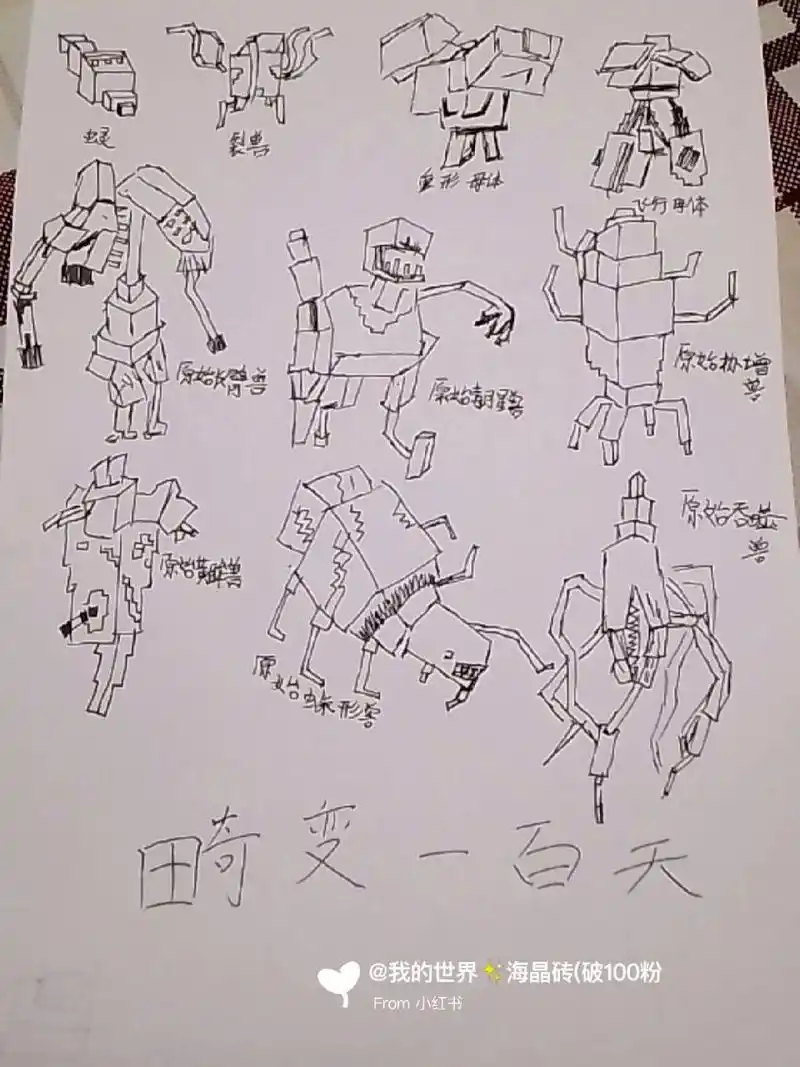 裂兽
鱼形母体
飞行母体
原始长臂兽
原始
原始
兽
原始
原始
形兽
原始吞噬
兽
畸变一百天
@我的世界✨海晶砖(破100粉
From 小红书